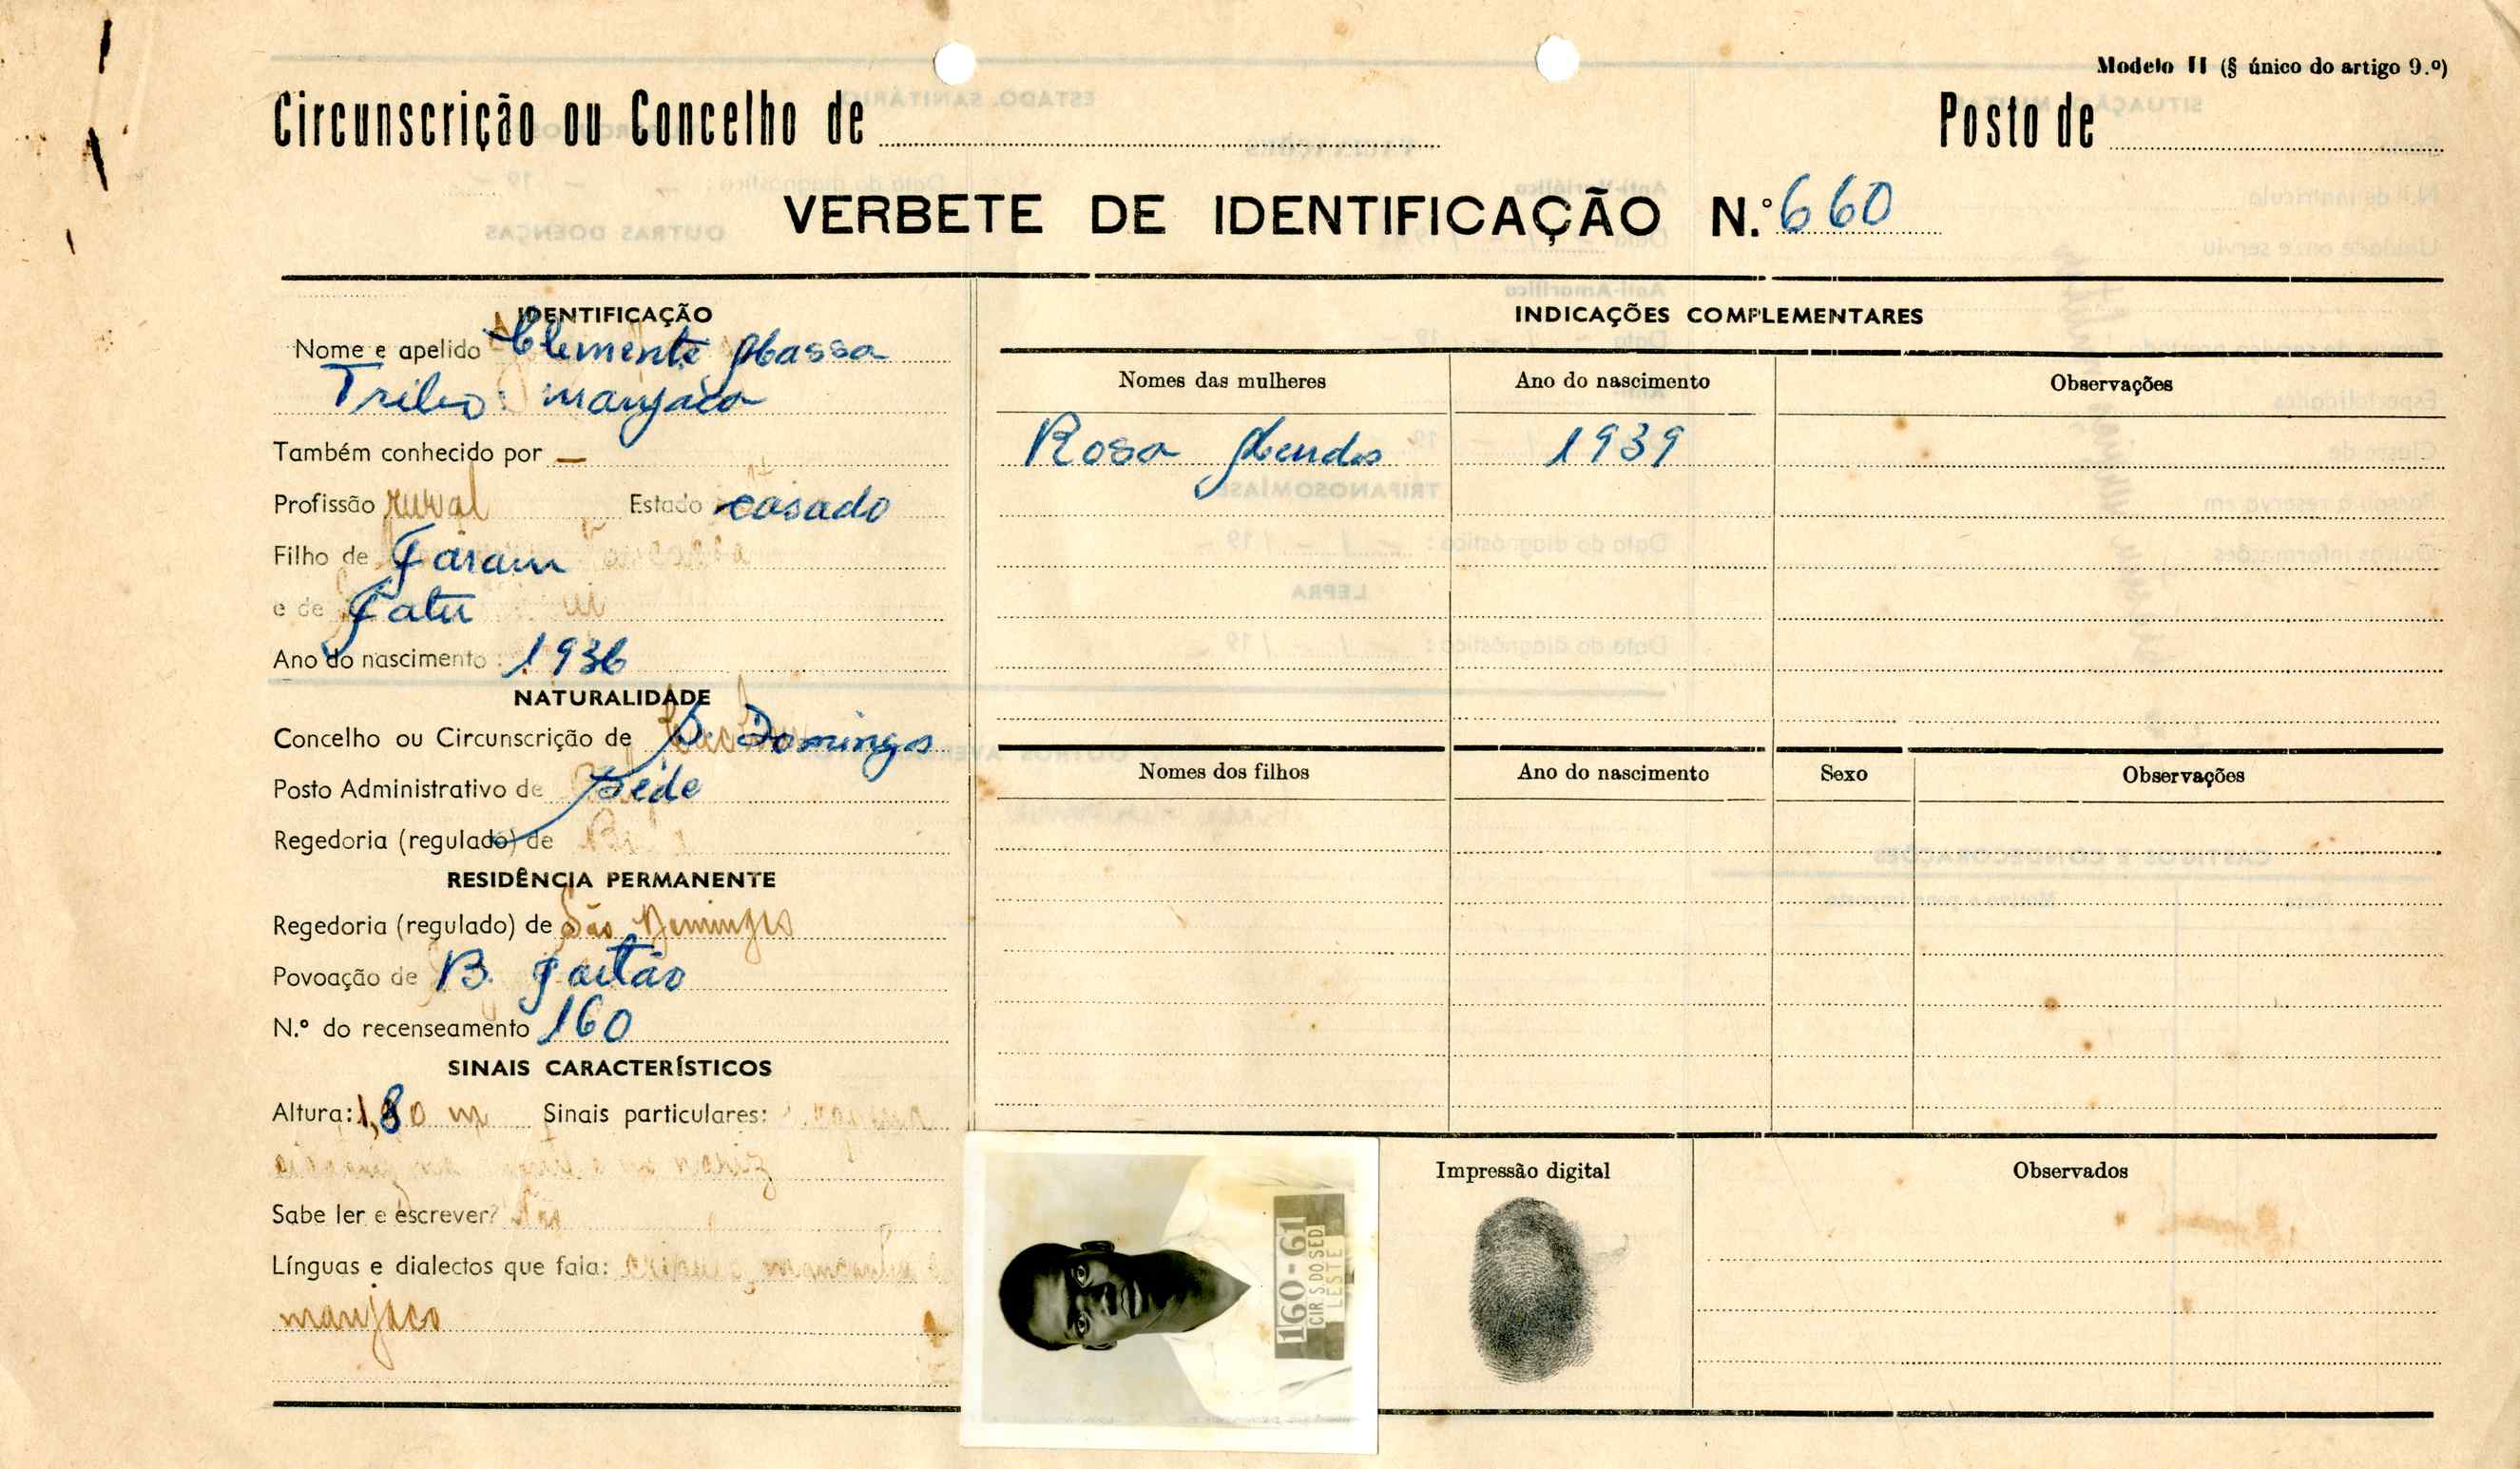 Modelo II (§ único do artigo 9.º)
Circunscrição ou Concelho de
Posto de
VERBETE DE IDENTIFICAÇÃO N.º 660
IDENTIFICAÇÃO
Nome e apelido Clemente Massa
Tribo: manjaco
Também conhecido por —
Profissão rural Estado casado
Filho de Faram
e de Fatu
Ano do nascimento: 1936
NATURALIDADE
Concelho ou Circunscrição de S. Domingos
Posto Administrativo de Séde
Regedoria (regulado) de
RESIDÊNCIA PERMANENTE
Regedoria (regulado) de São Domingos
Povoação de B.
N.º do recenseamento 160
SINAIS CARACTERÍSTICOS
Altura: 1,80 m Sinais particulares:
nariz
Sabe ler e escrever?
Línguas e dialectos que fala: crioulo, mancanha e
manjaco
INDICAÇÕES COMPLEMENTARES
Nomes das mulheres Ano do nascimento Observações
Rosa Mendes 1939
Nomes dos filhos Ano do nascimento Sexo Observações
160-61
CIR.S.DO SED
LESTE
Impressão digital
Observados